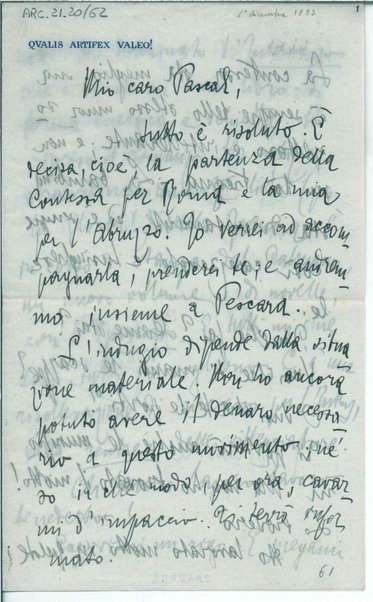 ARC.21.20/62
5 dicembre 1893
1
QVALIS ARTIFEX VALEO!
Mio caro Pascal,
tutto è risoluto. È
decisa, cioè, la partenza della
Contessa per Roma e la mia
per l'Abruzzo. Io verrei ad accom
pagnarla, prenderei te, e andrem
mo insieme a Pescara.
L'indugio dipende dalla situa
zione materiale. Non ho ancora
potuto avere il denaro necessa
rio a questo movimento; né
so in che modo, per ora, cavar
mi d'impaccio. Ti terrò infor
mato.
61